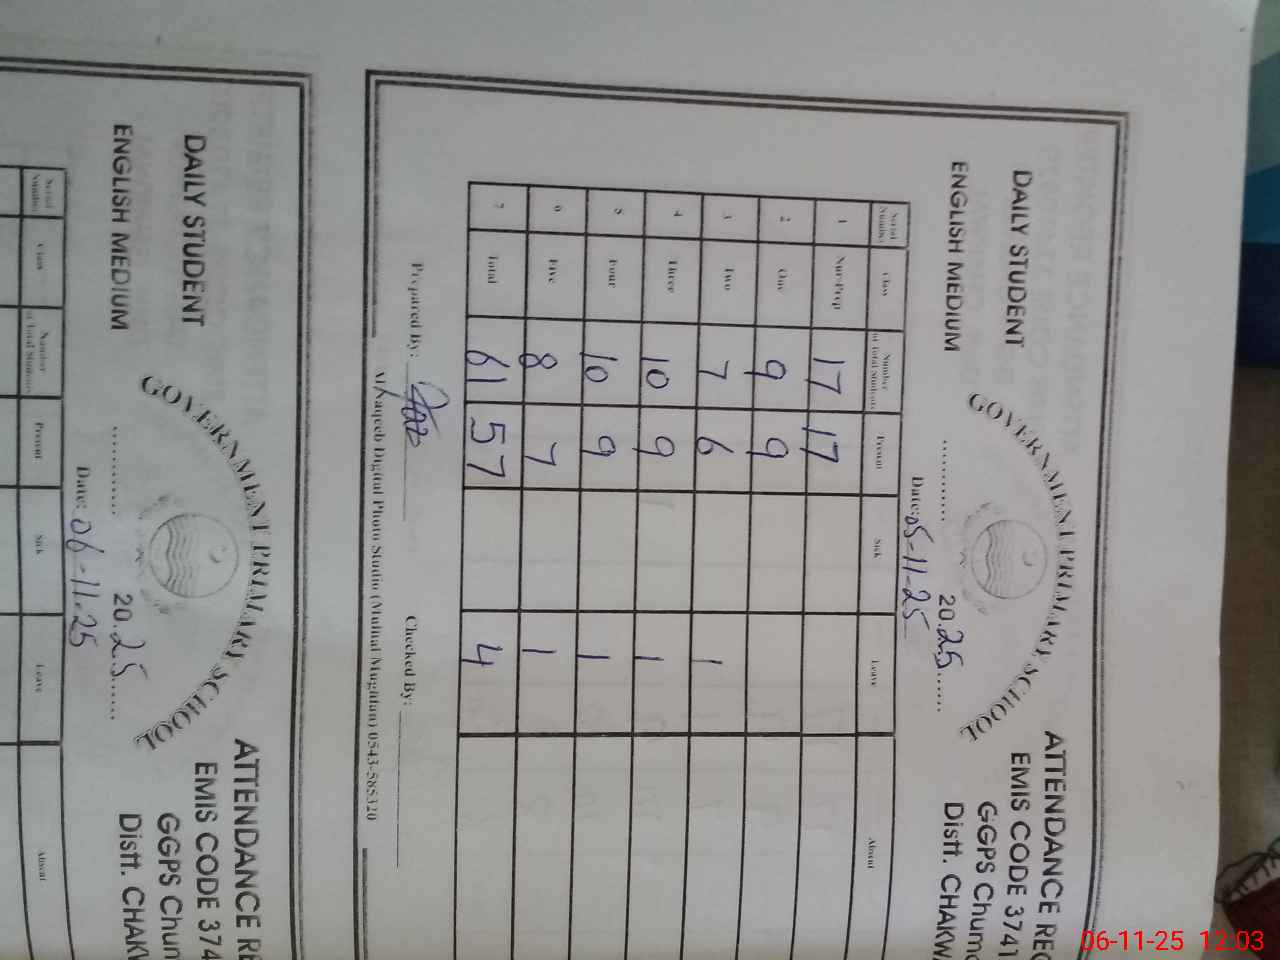 DAILY STUDENT
ENGLISH MEDIUM
GOVERNMENT PRIMARY SCHOOL
ATTENDANCE RE
EMIS CODE 3741
GGPS Chum
Distt. CHAKW
............20.25......
Date: 05-11-25
Serial Number Class Number of Total Students Present Sick Leave Absent
1 Nur-Prep 17 17
2 One 9 9
3 Two 7 6 1
4 Three 10 9 1
5 Four 10 9 1
6 Five 8 7 1
7 Total 61 57 4
Prepared By: Checked By:
Digital Photo Studio (Mulhal Mughlan) 0543-585320
DAILY STUDENT
ENGLISH MEDIUM
GOVERNMENT PRIMARY SCHOOL
ATTENDANCE RE
EMIS CODE 374
GGPS Chum
Distt. CHAK
............20.25......
Date: 06-11-25
Serial Number Class Number of Total Students Present Sick Leave Absent
06-11-25 12:03